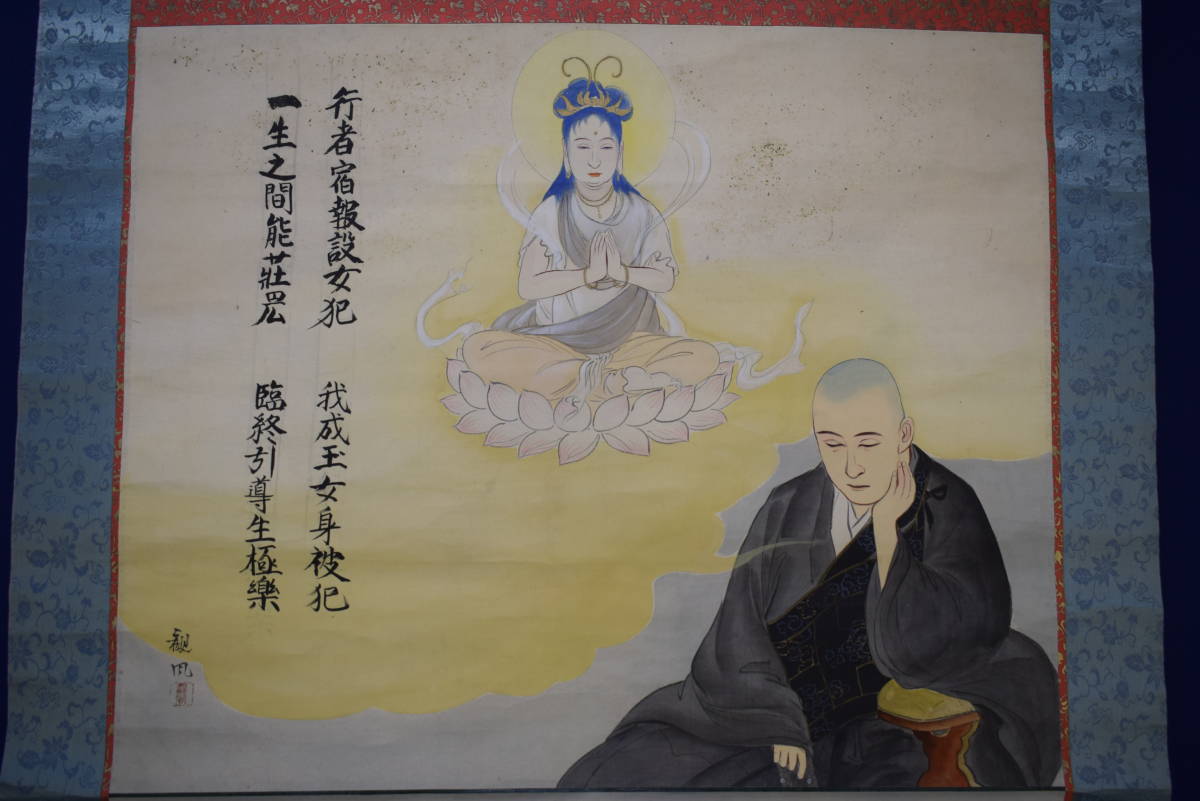 行者宿報設女犯　我成玉女身被犯
一生之間能莊嚴　臨終引導生極樂
観風